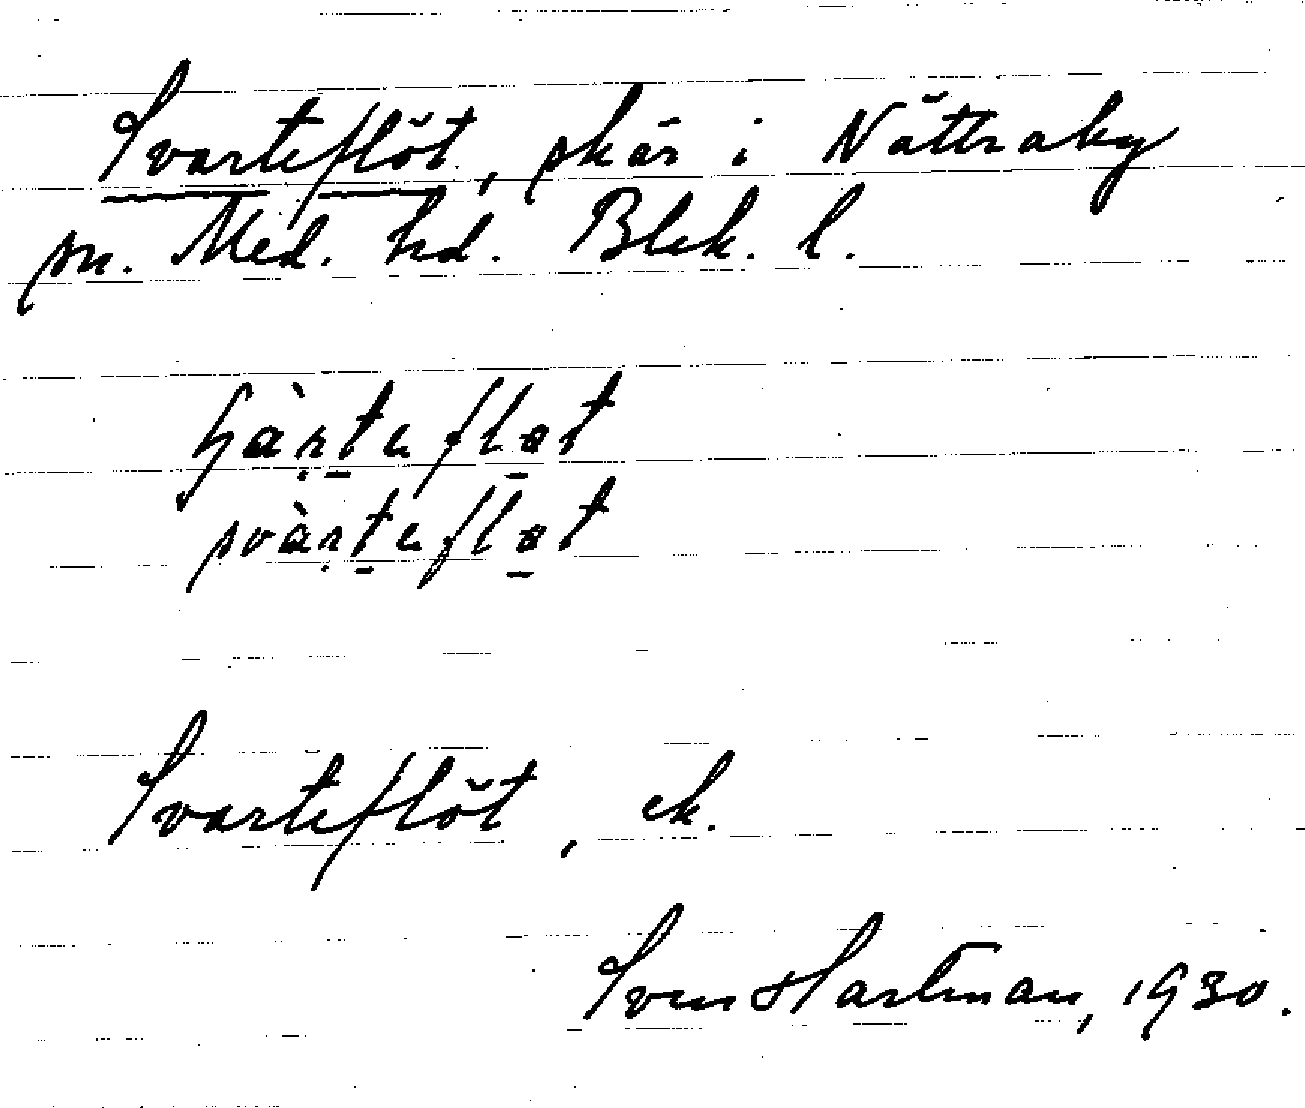 Svarteflöt, skär i Nättraby
sn. Med. hd. Blek. l.
svàrteflot
Svarteflöt, ek.
Sven Hartman, 1930.